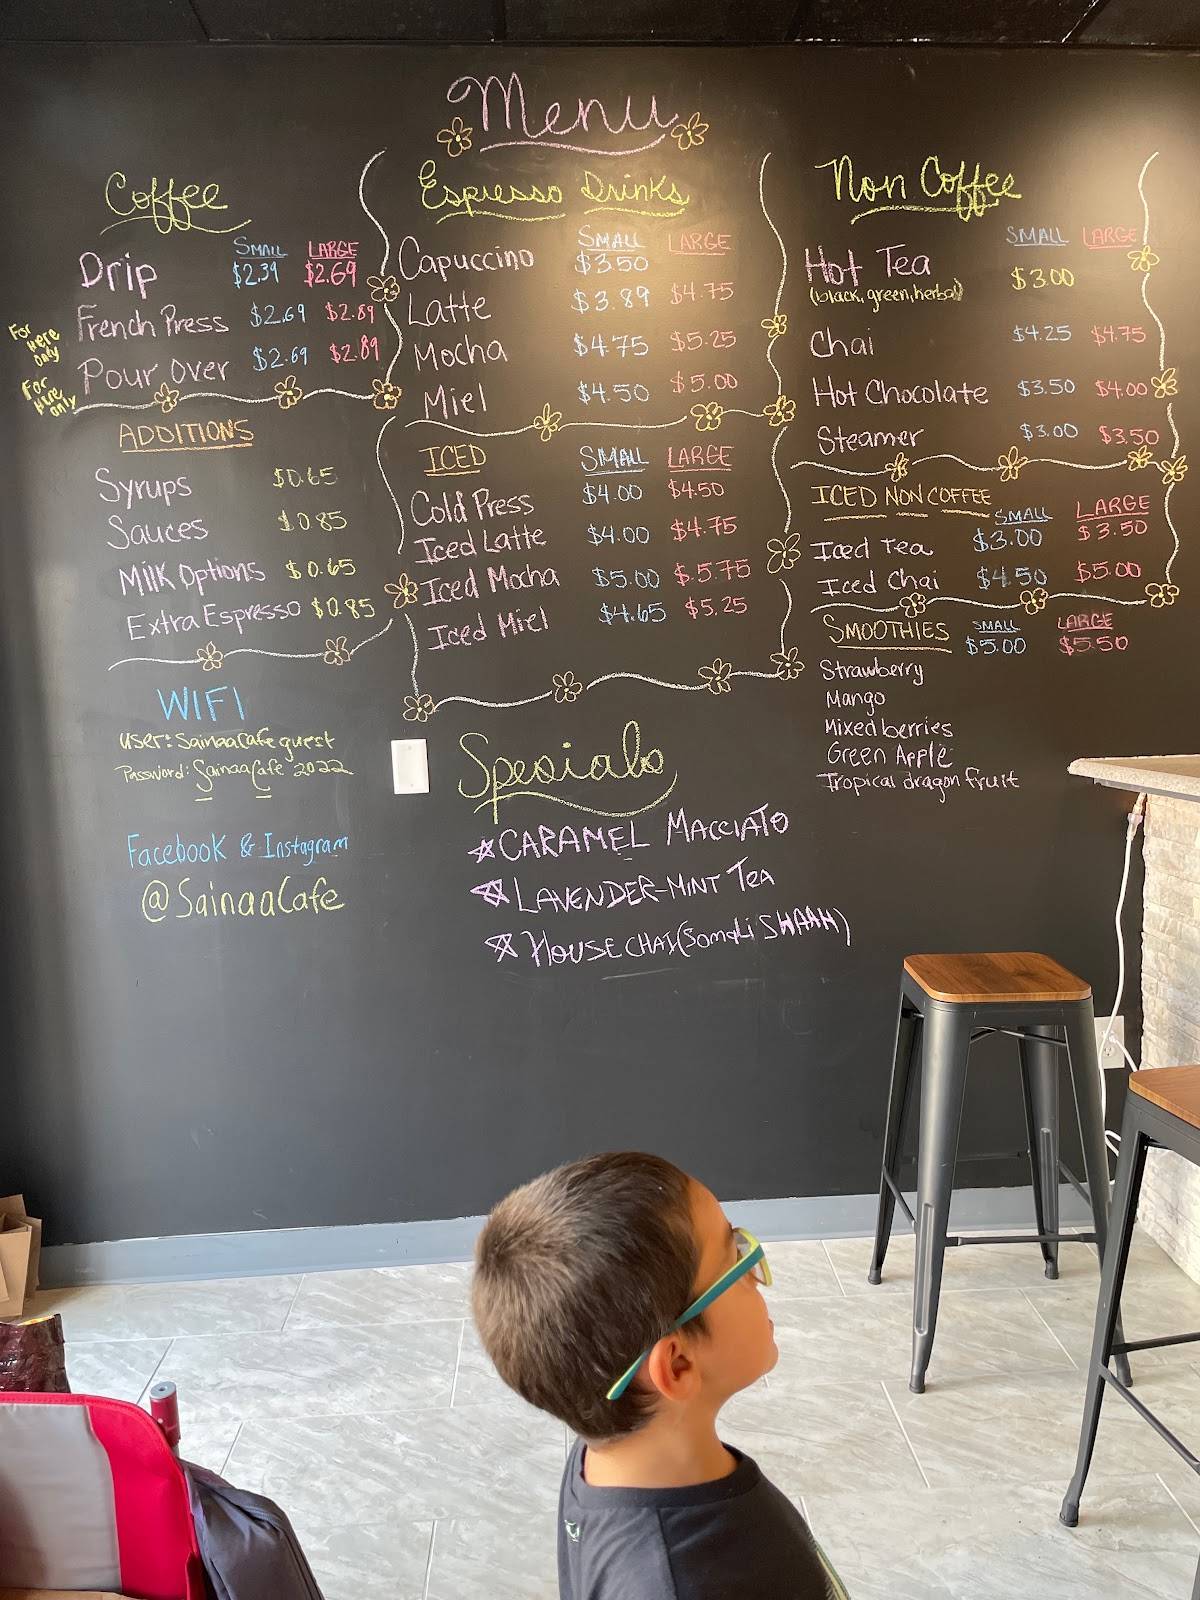 Menu
Coffee
SMALL LARGE
Drip $2.39 $2.69
For Here Only
French Press $2.69 $2.89
For Here Only
Pour Over $2.69 $2.89
ADDITIONS
Syrups $0.65
Sauces $0.85
Milk Options $0.65
Extra Espresso $0.85
WIFI
User: SainaaCafe guest
Password: SainaaCafe 2022
Facebook & Instagram
@SainaaCafe
Espresso Drinks
SMALL LARGE
Capuccino $3.50
Latte $3.89 $4.75
Mocha $4.75 $5.25
Miel $4.50 $5.00
ICED SMALL LARGE
Cold Press $4.00 $4.50
Iced Latte $4.00 $4.75
Iced Mocha $5.00 $5.75
Iced Miel $4.65 $5.25
Specials
CARAMEL MACCIATO
LAVENDER-MINT TEA
HOUSE CHAI (Somali SHAAH)
Non Coffee
SMALL LARGE
Hot Tea $3.00
(black, green, herbal)
Chai $4.25 $4.75
Hot Chocolate $3.50 $4.00
Steamer $3.00 $3.50
ICED NON COFFEE
SMALL LARGE
Iced Tea $3.00 $3.50
Iced Chai $4.50 $5.00
SMALL LARGE
SMOOTHIES $5.00 $5.50
Strawberry
Mango
Mixed berries
Green Apple
Tropical dragon fruit